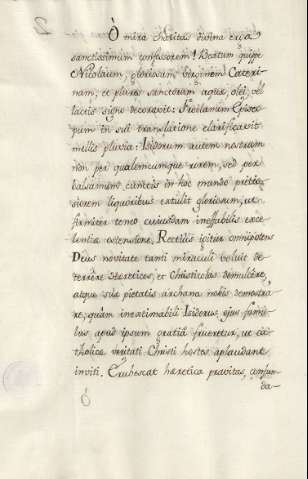 O mira Charitas divina erga
sanctissimum confessorem! Beatum quipe
Nicolaum, gloriosam virginem Cateri-
nam, et plures sanctorum aquæ, olei, vel
lactis signo decoravit: Proclamum Episco-
pum in sui translatione clarificavit
mellis pluvia: Isidorum autem nostrum
non per qualemcumque rorem, sed per
balsamum cunctis in hoc mundo pretio-
siorem liquoribus extulit gloriosum, ut
firmiter temo cuiusdam ineffabilis exce
lentia ostensione, Recellis igitur omnipotens
Deus novitate tanti miraculi voluit de
terrere hæreticos, et Christicolas demulcere,
atque suæ pietatis archana nobis demostra
re; quam inextimabili Isidorus, ejus famu-
lus apud ipsum gratiâ frueretur, ut ca-
tholicæ veritati Christi hostes aplaudant
inviti. Erubescat hæretica pravitas, confun
da-